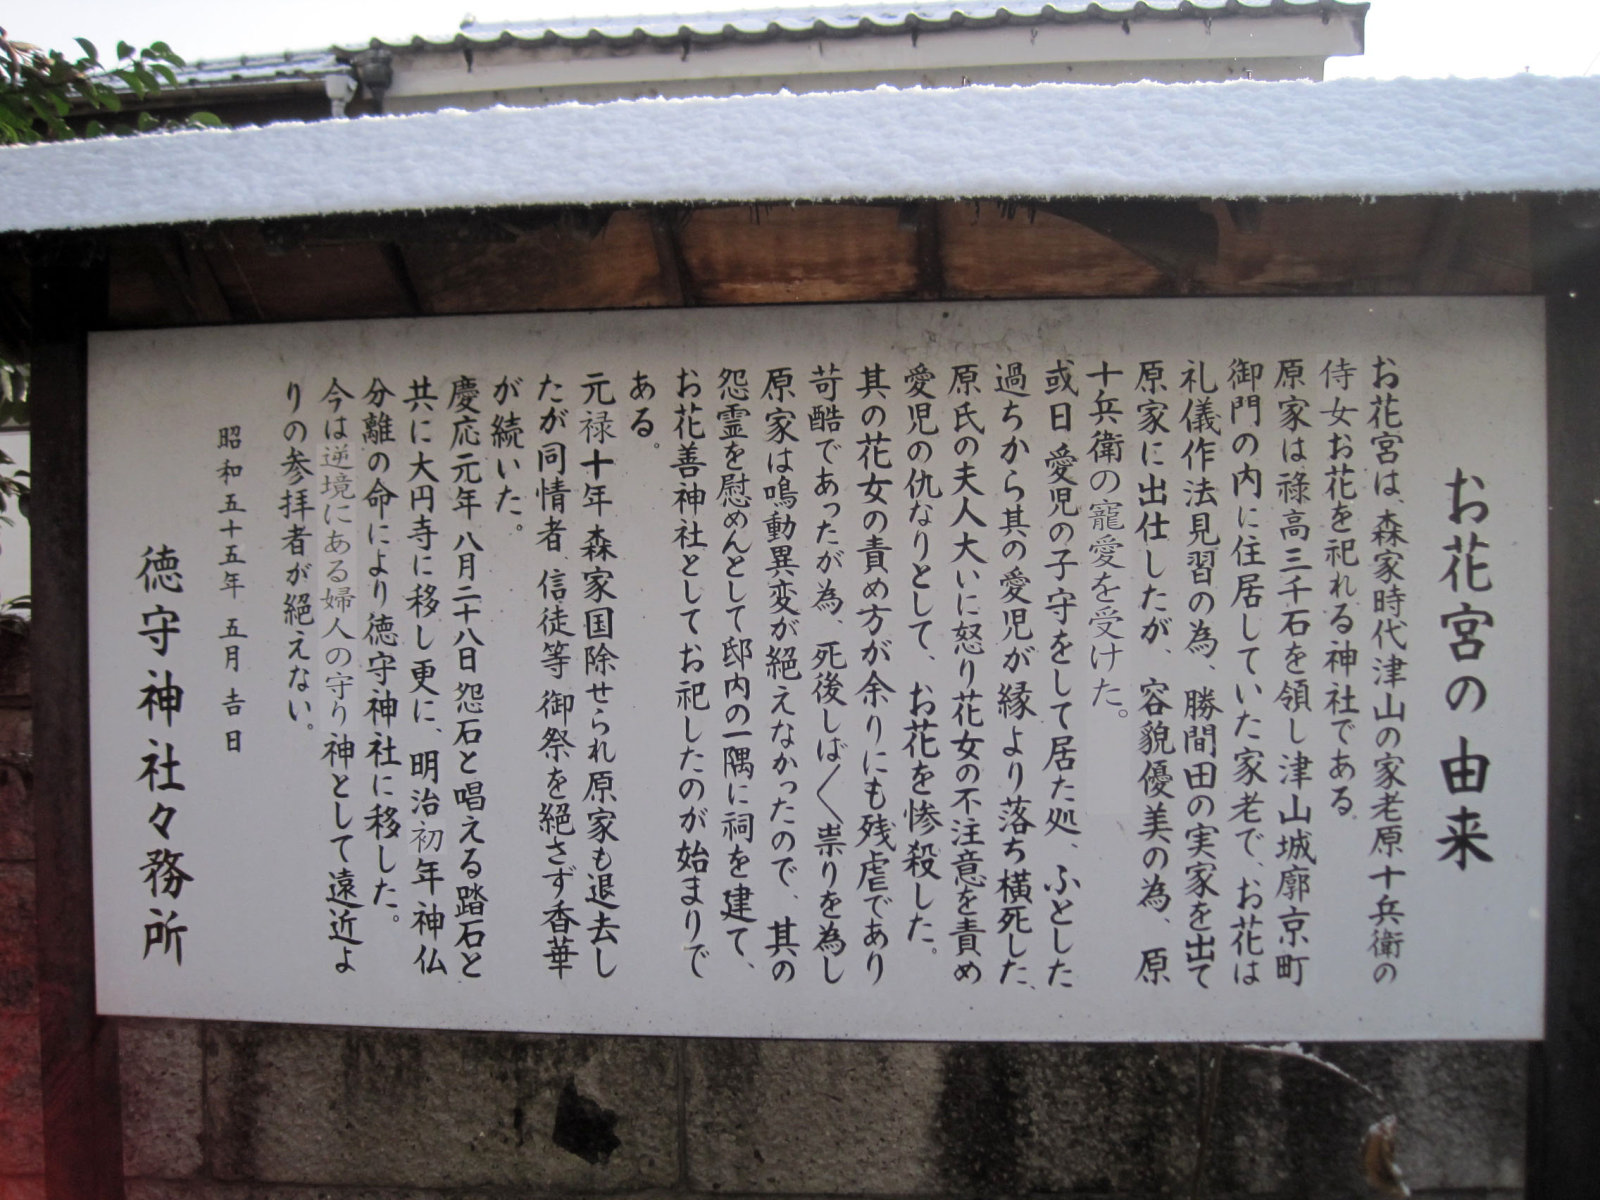 お花宮の由来
お花宮は、森家時代津山の家老原十兵衛の
侍女お花を祀れる神社である
原家は祿高三千石を領し津山城廓京町
御門の内に住居していた家老で、お花は
礼儀作法見習の為、勝間田の実家を出て
原家に出仕したが、容貌優美の為、原
十兵衛の寵愛を受けた。
或日愛児の子守をして居た処、ふとした
過ちから其の愛児が縁より落ち横死した、
原氏の夫人大いに怒り花女の不注意を責め
愛児の仇なりとして、お花を惨殺した。
其の花女の責め方が余りにも残虐であり
苛酷であったが為、死後しば〱祟りを為し
原家は鳴動異変が絶えなかったので、其の
怨霊を慰めんとして邸内の一隅に祠を建て、
お花善神社としてお祀したのが始まりで
ある。
元禄十年森家国除せられ原家も退去し
たが同情者、信徒等御祭を絶さず香華
が続いた。
慶応元年八月二十八日怨石と唱える踏石と
共に大円寺に移し更に、明治初年神仏
分離の命により徳守神社に移した。
今は逆境にある婦人の守り神として遠近よ
りの参拝者が絶えない。
昭和五十五年五月吉日
徳守神社々務所